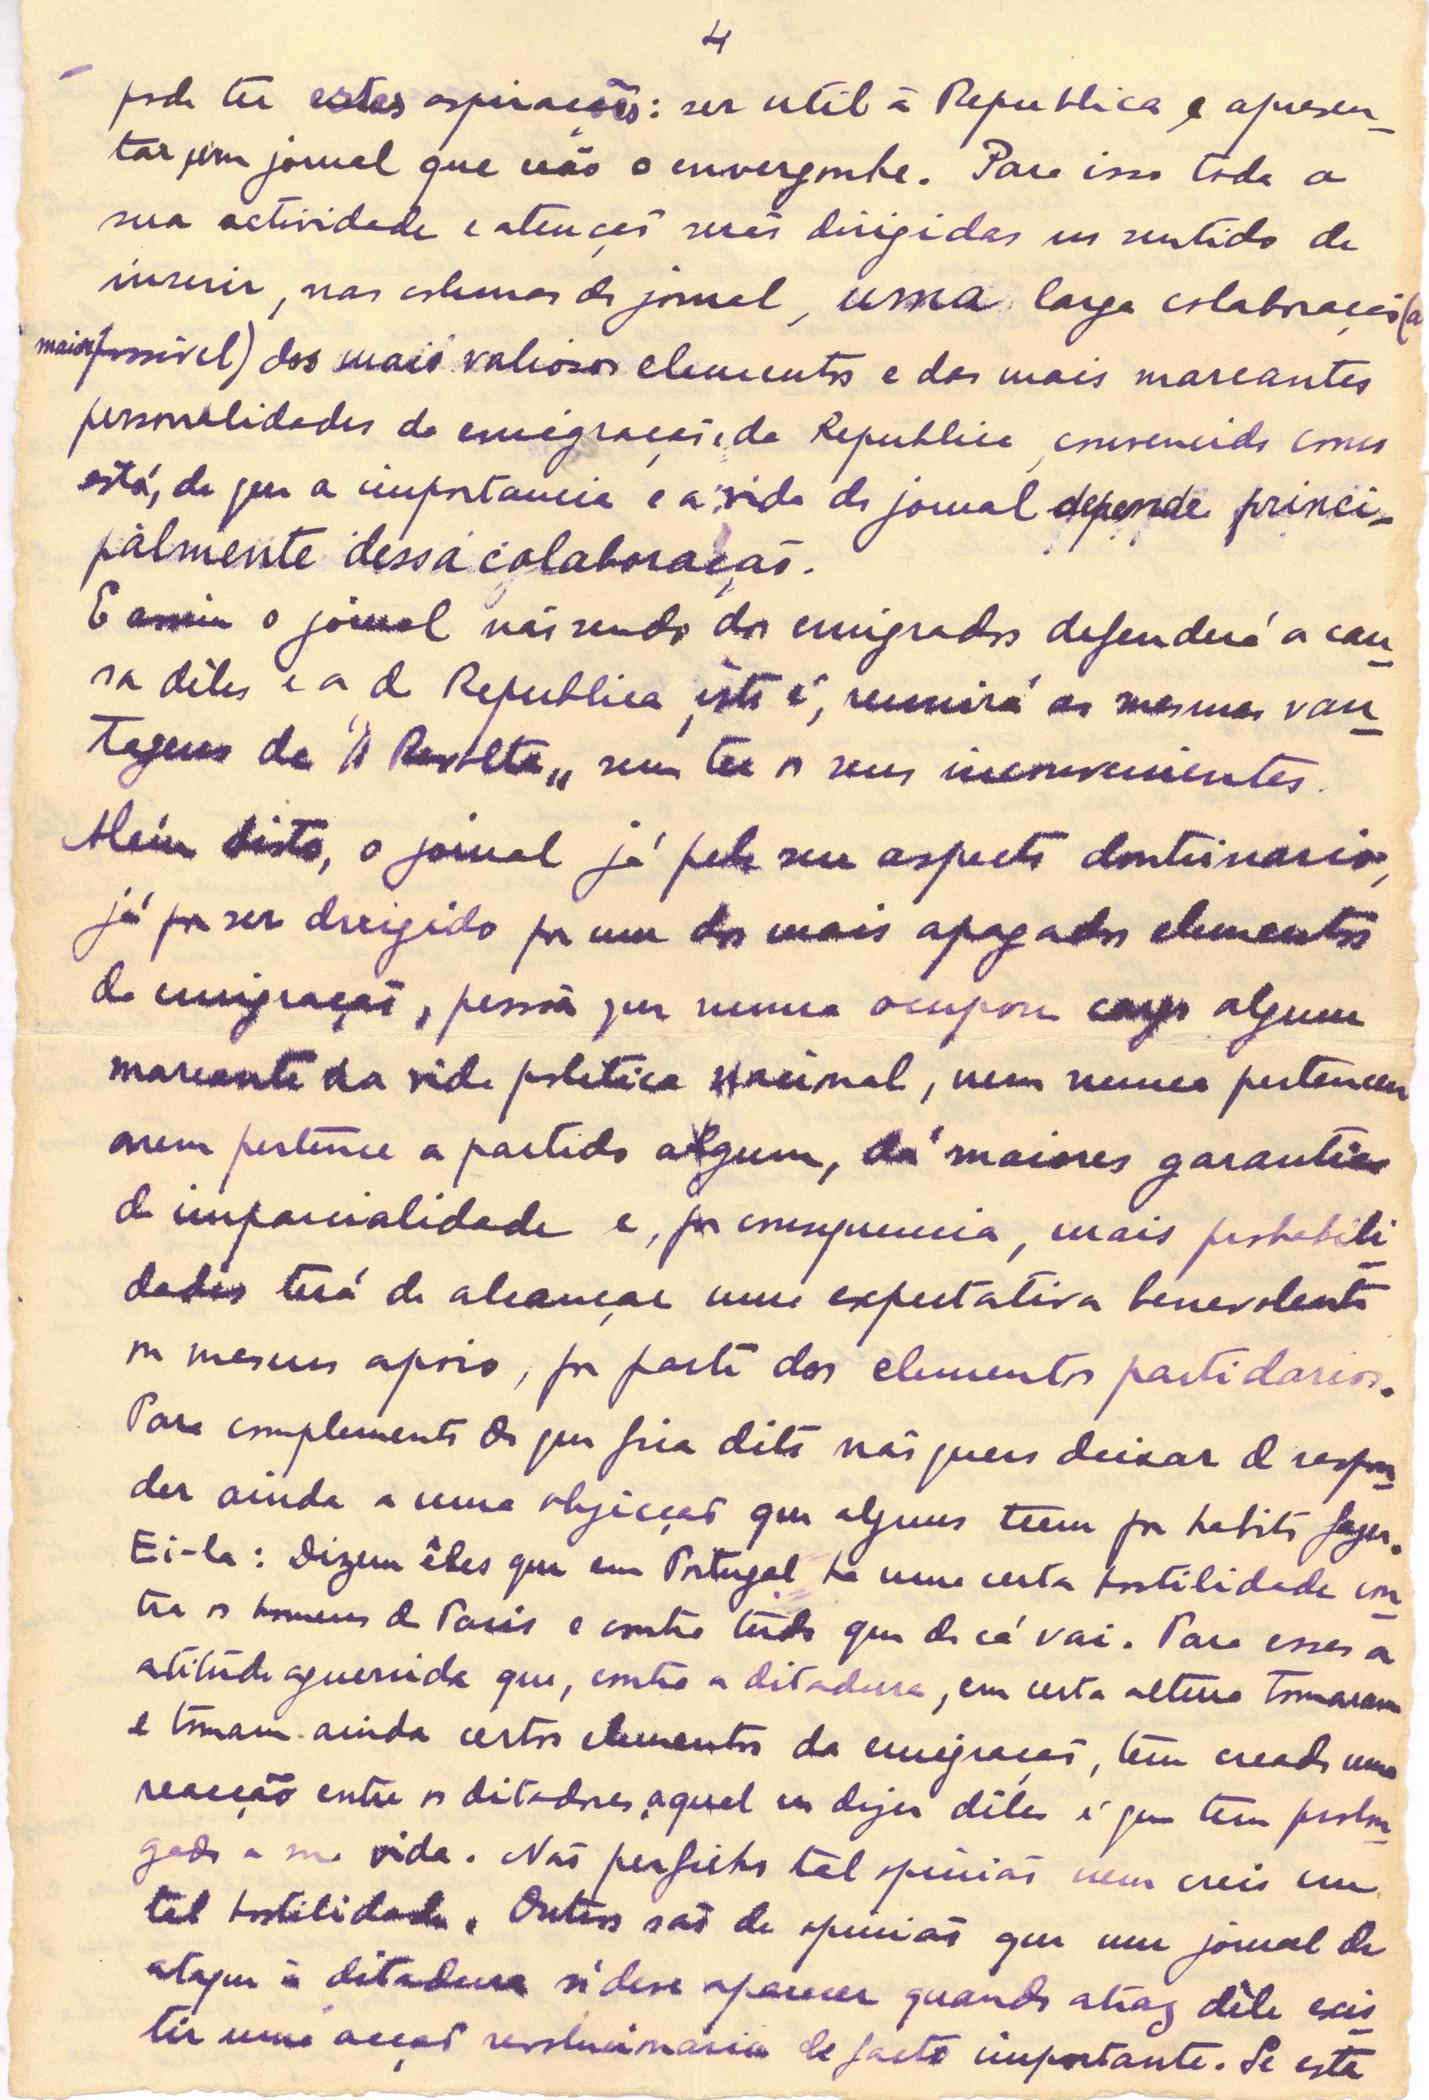 4
pode ter estas aspirações: ser util á Republica e apresen-
tar um jornal que não o envergonhe. Para isso toda a
sua actividade e atenção serão dirigidas no sentido de
inserir, nas colunas do jornal, uma larga colaboração (a
maior possivel) dos mais valiosos elementos e das mais marcantes
personalidades da emigração e da Republica, convencido como
está, de que a importancia e a vida do jornal depende princi-
palmente dessa colaboração.
E assim o jornal não sendo dos emigrados defenderá a cau-
sa dêles e a da Republica, isto é, reunirá as mesmas van-
tagens da "A Revolta" sem ter os seus inconvenientes.
Além disto, o jornal já pelo seu aspecto doutrinario,
já por ser dirigido por um dos mais apagados elementos
da emigração, pessôa que nunca ocupou cargo algum
marcante na vida politica nacional, nem nunca pertenceu
nem pertence a partido algum, dá maiores garantias
de imparcialidade e, por consequencia, mais probabili-
dades terá de alcançar uma expectativa benevolente
ou mesmo apoio, por parte dos elementos partidarios.
Para complemento do que fica dito não quero deixar de respon-
der ainda a uma objecção que alguns teem por habito fazer.
Ei-la: Dizem êles que em Portugal ha uma certa hostilidade con-
tra os homens de Paris e contra tudo que de cá vai. Para esses a
atitude aguerrida que, contra a ditadura, em certa altura tomaram
e tomam ainda certos elementos da emigração, tem creado uma
reacção entre os ditadores, aquel no dizer dêles é que tem prolon-
gado a sua vida. Não perfilho tal opinião nem creio em
tal hostilidade. Outros são de opinião que um jornal de
ataque á ditadura só deve aparecer quando atraz dêle exis-
tir uma acção revolucionaria de facto importante. Se esta